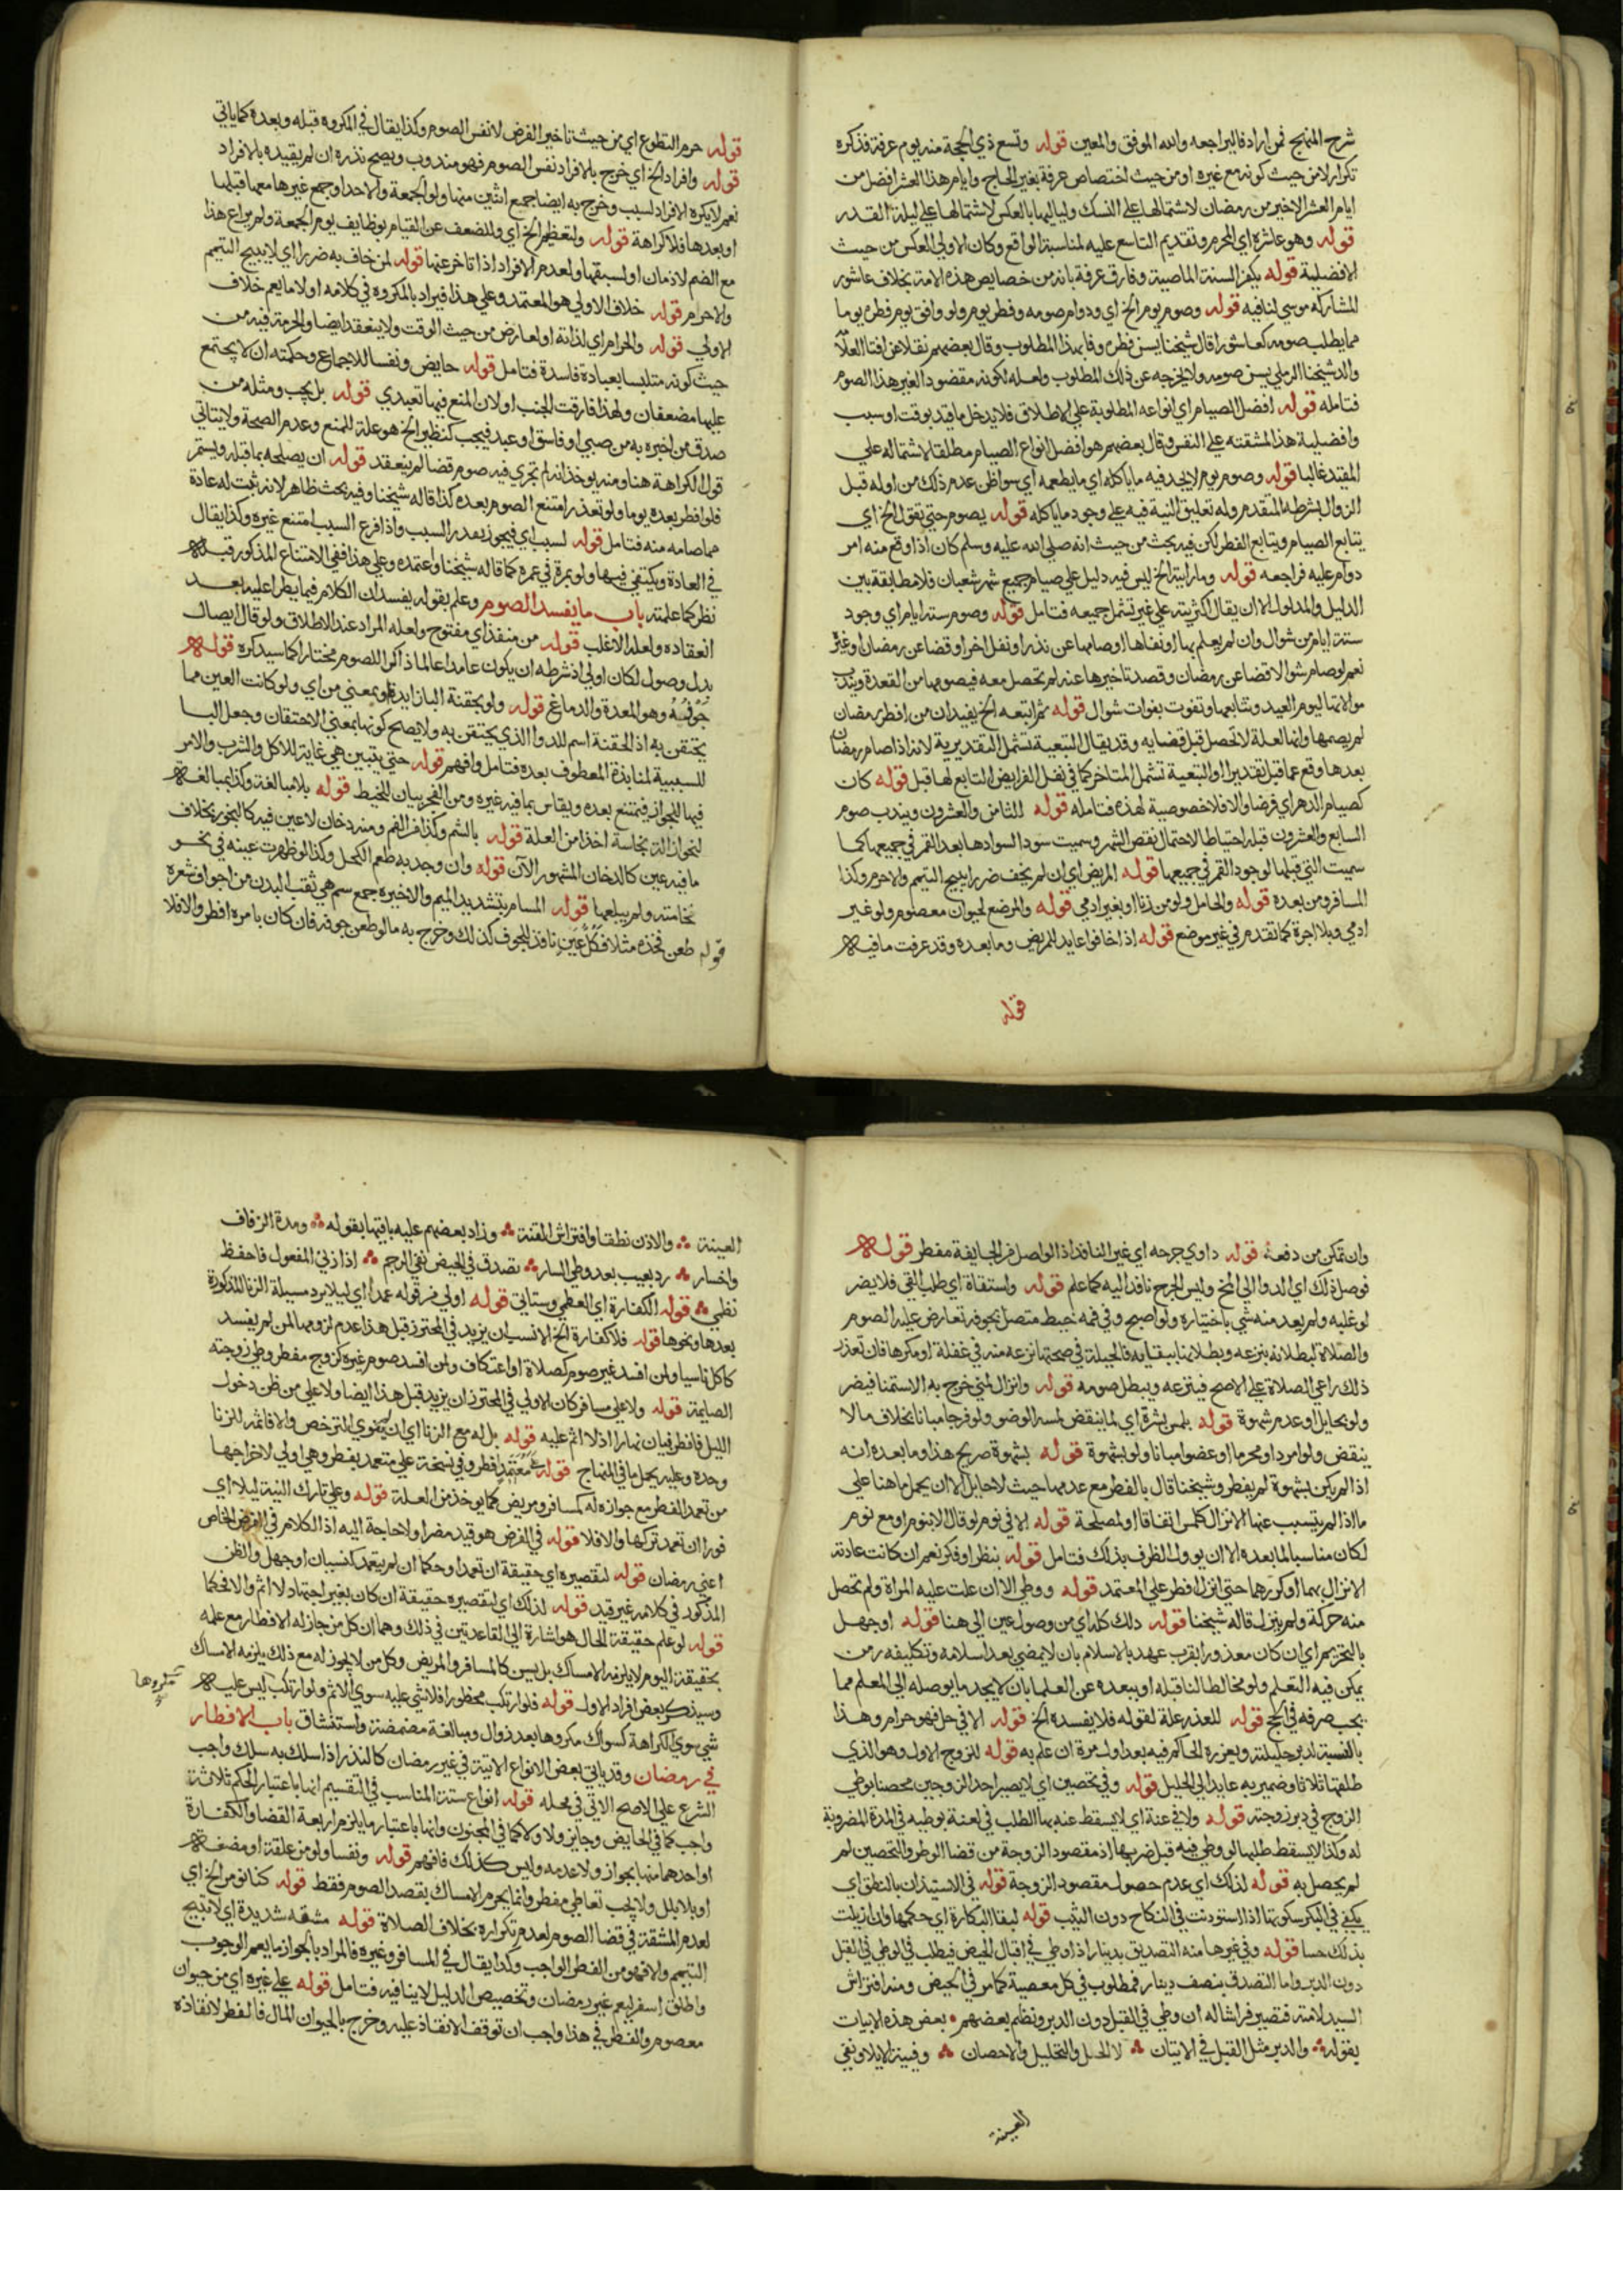 شرح المنهج فمن اراد فاليراجعه والله الموفق والمعين قوله وتسع ذي الحجة منه يوم عرفة فذكره
تكرار لا من حيث كونه مع غيره او من حيث اختصاص عرفة بغير الحاج وايام هذا العشر افضل من
ايام العشر الاخير من رمضان لاشتمالها علي النسك ولياليها بالعكس لاشتمالها علي ليلة القدر
قوله وهو عاشره اي المحرم وتقديم التاسع عليه لمناسبة الواقع وكان الاولي العكس من حيث
الافضلية قوله يكفر السنة الماضية وفارق عرفة بانه من خصايص هذه الامة بخلاف عاشور
المشاركه موسي لنا فيه قوله وصوم يوم الخ اي ودوام صومه وفطر يوم ولو وافق يوم فطره يوما
مما يطلب صومه كعاشورا قال شيخنا يسن فطره وفا بهذا المطلوب وقال بعضهم نقلا عن افتا العلامة
والد شيخنا الرملي يسن صومه ولا يخرجه عن ذلك المطلوب ولعله لكونه مقصودا لغير هذا الصوم
فتامله قوله افضل الصيام اي انواعه المطلوبة علي الاطلاق فلا يدخل ما قيد بوقت او سبب
وافضلية هذا المشقته علي النفس وقال بعضهم هو افضل انواع الصيام مطلقا لاشتماله علي
المقيد غالبا قوله وصوم يوم لا يجد فيه ما ياكله اي ما يطعمه اي سوا ظن عدم ذلك من اوله قبل
الزوال بشرطه المتقدم وله تعليق النية فيه علي وجود ما ياكله قوله يصوم حتي نقول الخ اي
يتابع الصيام ويتابع الفطر لكن فيه بحث من حيث انه صلي الله عليه وسلم كان اذا وقع منه امر
دوام عليه فراجعه قوله وما رايته الخ ليس فيه دليل علي صيام جميع شهر شعبان فلا مطابقة بين
الدليل والمدلول الا ان يقال اكثريته علي غيره تشمل جميعه فتامل قوله وصوم ستة ايام اي وجود
ستة ايام من شوال وان لم يعلم بها او نفاها او صامها عن نذر او نفل اخر او قضا عن رمضان او غيره
نعم لو صام شوالا قضا عن رمضان وقصد تاخيرها عنه لم تحصل معه فيصومها من القعدة ويندب
موالاتها ليوم العيد وتتابعها وتفوت بفوات شوال قوله ثم اتبعه الخ يفيد ان من افطر رمضان
لم يصمها وانما لعلة لا تحصل قبل قضايه وقد يقال التبعية تشمل التقديرية لانه اذا صام رمضان
بعدها وقع عما قبل تقديرا او التبعية تشمل المتاخر كما في نفل الفرايض التابع لها قبل قوله كان
كصيام الدهر اي فرضا والا فلا خصوصية لهذه فتامله قوله الثامن والعشرون ويندب صوم
السابع والعشرون قبله احتياطا لاحتمال نقص الشهر وسميت سودا لسوادها بعد القمر في جميعها كما
سميت التي قبلها لوجود القمر في جميعها قوله المريض اي ان لم يخف ضررا يبيح التيمم والا حرم وكذا
المسافر ومن بعده قوله والحامل ولو من زنا او بغير ادمي قوله والمرضع لحيوان معصوم ولو غير
ادمي وبلا اجرة كما تقدم في غير موضع قوله اذا خافوا عايد للمريض وما بعده وقد عرفت ما فيه
قوله
قوله حرم التطوع اي من حيث تاخير الفرض لا نفس الصوم وكذا يقال في المكروه قبله وبعده كما ياتي
قوله وافراد الخ اي خرج بالافراد نفس الصوم فهو مندوب ويصح نذره ان لم يقيده بالافراد
نعم لا يكره الافراد لسبب وخرج به ايضا جميع اثنين منها ولو الجمعة والاحد او جمع غيرها معها قبلها
او بعدها فلا كراهة قوله ولتعظيم الخ اي وللضعف عن القيام بوظايف يوم الجمعة ولم يراع هذا
مع الضم لادمان او لسبقها ولعدم الافراد اذا تاخر عنها قوله لمن خاف به ضررا اي لا يبيح التيمم
والا حرم قوله خلاف الاولي هو المعتمد وعلي هذا فيراد بالمكروه في كلامه اولا ما يعم خلاف
الاولي قوله والحرام اي لذاته او لعارض من حيث الوقت ولا ينعقد ايضا والحرمة فيه من
حيث كونه متلبسا بعبادة فاسدة فتامل قوله حايض ونفسا للاجماع وحكمته ان لا يجتمع
عليها مضعفان ولهذا فارقت الجنب او لان المنع فيها تعبدي قوله بل يجب ومثله من
صدق من اخبره به من صبي او فاسق او عبد فيجب كنظير الخ هو علة للمنع وعدم الصحة ولا يتاتي
قول الكراهة هنا ومنه يوخذ انه لم تجري فيه صوم قضا لم ينعقد قوله ان يصله بما قبله ويستمر
فلو افطر بعده يوما ولو تعذر امتنع الصوم بعده كذا قاله شيخنا وفيه بحث ظاهر لانه ثبت له عادة
مما صامه منه فتامل قوله لسبب اي فيجوز بقدر السبب واذا فرغ السبب امتنع غيره وكذا يقال
في العادة ويكتفي فيها ولو بمرة في عمره كما قاله شيخنا واعتمده وعلي هذا ففي الامتناع المذكور قبله
نظر كما علمته باب ما يفسد الصوم وعلم بقوله يفسد ان الكلام فيما يطرا عليه بعد
انعقاده ولعله الاغلب قوله من منفذ اي مفتوح ولعله المراد عند الاطلاق ولو قال ايصال
بدل وصول لكان اولي اذ شرطه ان يكون عامدا عالما ذاكرا للصوم مختارا كما سيذكره قوله
جوفيه وهو المعدة والدماغ قوله ولو بحقنة الباء زايدة او بمعني من اي ولو كانت العين مما
يحتقن به اذ الحقنة اسم للدوا الذي يحتقن به ولا يصح كونها بمعني الاحتقان وجعل البا
للسببية لمنابذة المعطوف بعده فتامل وافهم قوله حتي يتبين هي غاية للاكل والشرب والامر
فيها للجواز فيمتنع بعده ويقاس بما فيه غيره ومن الفجر بيان للخيط قوله بلا مبالغة وكذا بمبالغة
لنحو ازالة نجاسة اخذا من العلة قوله بالشم وكذا في الفم ومنه دخان لا عين فيه كالبخور بخلاف
ما فيه عين كالدخان المشهور الآن قوله وان وجد به طعم الكحل وكذا لو ظهرت عينه في نحو
نخامته ولم يبلعها قوله المسام بتشديد الميم والاخيرة جمع سم هي ثقب البدن من اجوافه شعره
قوله طعن فخذه مثلا فكل عين نافذ للجوف كذلك وخرج به ما لو طعن جوفه فان كان بامره افطر والا فلا
وان تمكن من دفعه قوله داوي جرحه اي غير النافذ اذ الواصل من الجايفة مفطر قوله
فوصل ذلك اي الدوا الي المخ وليس الجرح نافذا اليه كما علم قوله واستقاة اي طلب القي فلا يضر
لو غلبه ولم يعد منه شي باختياره ولو اصبح وفي فمه خيط متصل بجوفه تعارض عليه الصوم
والصلاة لبطلانه بنزعه وبطلانها ببقايه فالحيلة في صحتها نزعه منه في غفلة او مكرها فان تعذر
ذلك راعي الصلاة علي الاصح فينزعه ويبطل صومه قوله وانزال لمني خرج به الاستمنا فيضر
ولو بحايل او عدم شهوة قوله بلمس بشرة اي لما ينقض لمسه الوضو ولو فرجا مبانا بخلاف ما لا
ينقض ولو امرد او محرما او عضوا مبانا ولو بشهوة قوله بشهوة صريح هذا وما بعده انه
اذا لم يكن بشهوة لم يفطر وشيخنا قال بالفطر مع عدمها حيث لا حايل الا ان يحمل ما هنا علي
ما اذا لم يتسبب عنها الانزال كلمس اتفاقا او لمصلحة قوله لا في نوم لو قال لا بنوم او مع نوم
لكان مناسبا لما بعده الا ان يوول الظرف بذلك فتامل قوله بنظر او فكر نعم ان كانت عادته
الانزال بهما او كررهما حتي انزل افطر علي المعتمد قوله ووطي الا ان علت عليه المراة ولم تحصل
منه حركة ولم ينزل قاله شيخنا قوله ذلك كله اي من وصول عين الي هنا قوله او جهل
بالتحريم اي ان كان معذورا بقرب عهد بالاسلام بان لا يمضي بعد اسلامه وتكليفه زمن
يمكن فيه التعلم ولو مخالطا لنا قبله او ببعده عن العلما بان لا يجد ما يوصله الي المعلم مما
يجب صرفه في الحج قوله للعذر علة لقوله فلا يفسده الخ قوله الا في حل فهو حرام وهذا
بالنسبة لدبر حليلته ويعزره الحاكم فيه بعد اول مرة ان علم به قوله للزوج الاول وهو الذي
طلقها ثلاثا وضمير به عايد الي الحليل قوله وفي تحصين اي لا يصير احد الزوجين محصنا بوطي
الزوج في دبر زوجته قوله ولا في عنة اي لا يسقط عنه بها الطلب في لعنة بوطيه في المدة المضروبة
له وكذا لا يسقط طلبها لو وطي فيه قبل ضربها اذ مقصود الزوجة من قضا الوطر والتحصين لم
لم يحصل به قوله لذلك اي عدم حصول مقصود الزوجة قوله في الاستيذان بالنطق اي
يكفي في البكر سكوتها اذا استوذنت في النكاح دون الثيب قوله لبقا البكارة اي حكمها وان زيلت
بذلك حسا قوله وفي غيرها منه التصديق بدينار اذا وطي في اقبال الحيض فيطلب في الوطي في القبل
دون الدبر واما التصدق بنصف دينار فمطلوب في كل معصية كما مر في الحيض ومنه افتراش
السيد لامته فتصير فراشا له ان وطي في القبل دون الدبر ونظم بعضهم بعض هذه الابيات
بقوله والدبر مثل القبل في الاتيان لا الحل والتحليل والاحصان وفيئة الايلا ونفي
العينة
العينة والاذن نطقا وافتراش القنة وزاد بعضهم عليه باقيها بقوله ومدة الزفاف
واخسار رد بعيب بعد وطي السار تصدق في الحيض نفي الرجم اذا زني المفعول فاحفظ
نظمي قوله الكفارة اي العظمي وستاتي قوله اولي من قوله عمدا اي ليلا يرد مسيلة الزنا المذكورة
بعدها ونحوها قوله فلا كفارة الخ الانسب ان يزيد في المحترز قبل هذا عدم لزومها لمن لم يفسد
كاكل ناسيا ولمن افسد غير صوم كصلاة او اعتكاف ولمن افسد صوم غيره كزوج مفطر وطي زوجته
الصايمة قوله ولا علي مسافر كان الاولي في المحترز ان يزيد قبل هذا ايضا ولا علي من ظن دخول
الليل فافطر فبان نهارا اذ لا اثم عليه قوله بل له مع الزنا اي ان ينوي الترخص والا فاثمه للزنا
وحده وعليه يحمل ما في المنهاج قوله معتمد فطر وفي نسخة علي متعمد بفطر وهي اولي لاخراجها
من تعمد الفطر مع جوازه له كمسافر ومريض كما يوخذ من العلة قوله وعلي تارك النية ليلا اي
فورا ان تعمد تركها والا فلا قوله في الفرض هو قيد مضر او لا حاجة اليه اذ الكلام في الفرض الخاص
اعني رمضان قوله لتقصيره اي حقيقة ان تعمد او حكما ان لم يتعمد كنسيان او جهل والظن
المذكور في كلامه غير قيد قوله لذلك اي لتقصيره حقيقة ان كان بغير اجتهاد لا اثم والا فحكما
قوله لو علم حقيقة الحال هو اشارة الي القاعدتين في ذلك وهما ان كل من جاز له الافطار مع علمه
بحقيقة اليوم لا يلزمه الامساك بل يسن كالمسافر والمريض وكل من لا يجوز له مع ذلك يلزمه الامساك
وسيذكر بعض افراد الاول قوله فلو ارتكب محظورا فلا شي عليه سوي الاثم ولو ارتكب ليس عليه
شي سوي الكراهة كسواك مكروها بعد زوال ومبالغة مضمضة واستنشاق باب الافطار
في رمضان وقد ياتي بعض الانواع الاتية في غير رمضان كالنذر اذا سلك به سلك واجب
الشرع علي الاصح الاتي في محله قوله انواع ستة المناسب في التقسيم انها باعتبار الحكم ثلاثة
واجب كما في الحايض وجايز ولا ولا كما في المجنون وانها باعتبار ما يلزم اربعة القضا والكفارة
او احدهما منها بجواز ولا عدمه وليس كذلك فافهم قوله ونفسا ولو من علقة او مضغة
او بلا بلل ولا يجب تعاطي مفطر وانما يحرم الامساك بقصد الصوم فقط قوله كنا نومر الخ اي
لعدم المشقة في قضا الصوم لعدم تكراره بخلاف الصلاة قوله مشقة شديدة اي لا تبيح
التيمم والا فهو من الفطر الواجب وكذا يقال في المسافر وغيره فالمراد بالجواز ما يعم الوجوب
واطلق السفر ليعم غير رمضان وتخصيص الدليل لا ينافيه فتامل قوله علي غيره اي من حيوان
معصوم والفطر في هذا واجب ان توقف الانقاذ عليه وخرج بالحيوان المال فالفطر لانقاذه